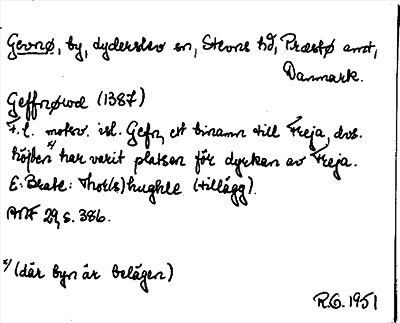 Gevnø, by, Lyderslev sn, Stevns hd, Præstø amt,
Danmark.
Geffnøwe (1387)
F.l. motsv. isl. Gefn, ett binamn till Freja, dvs.
höjden x/ har varit platsen för dyrkan av Freja.
E: Brate: Thor(s)hughle (tillägg).
ANF 29, s. 386.
x/ (där byn är belägen)
R.G. 1951